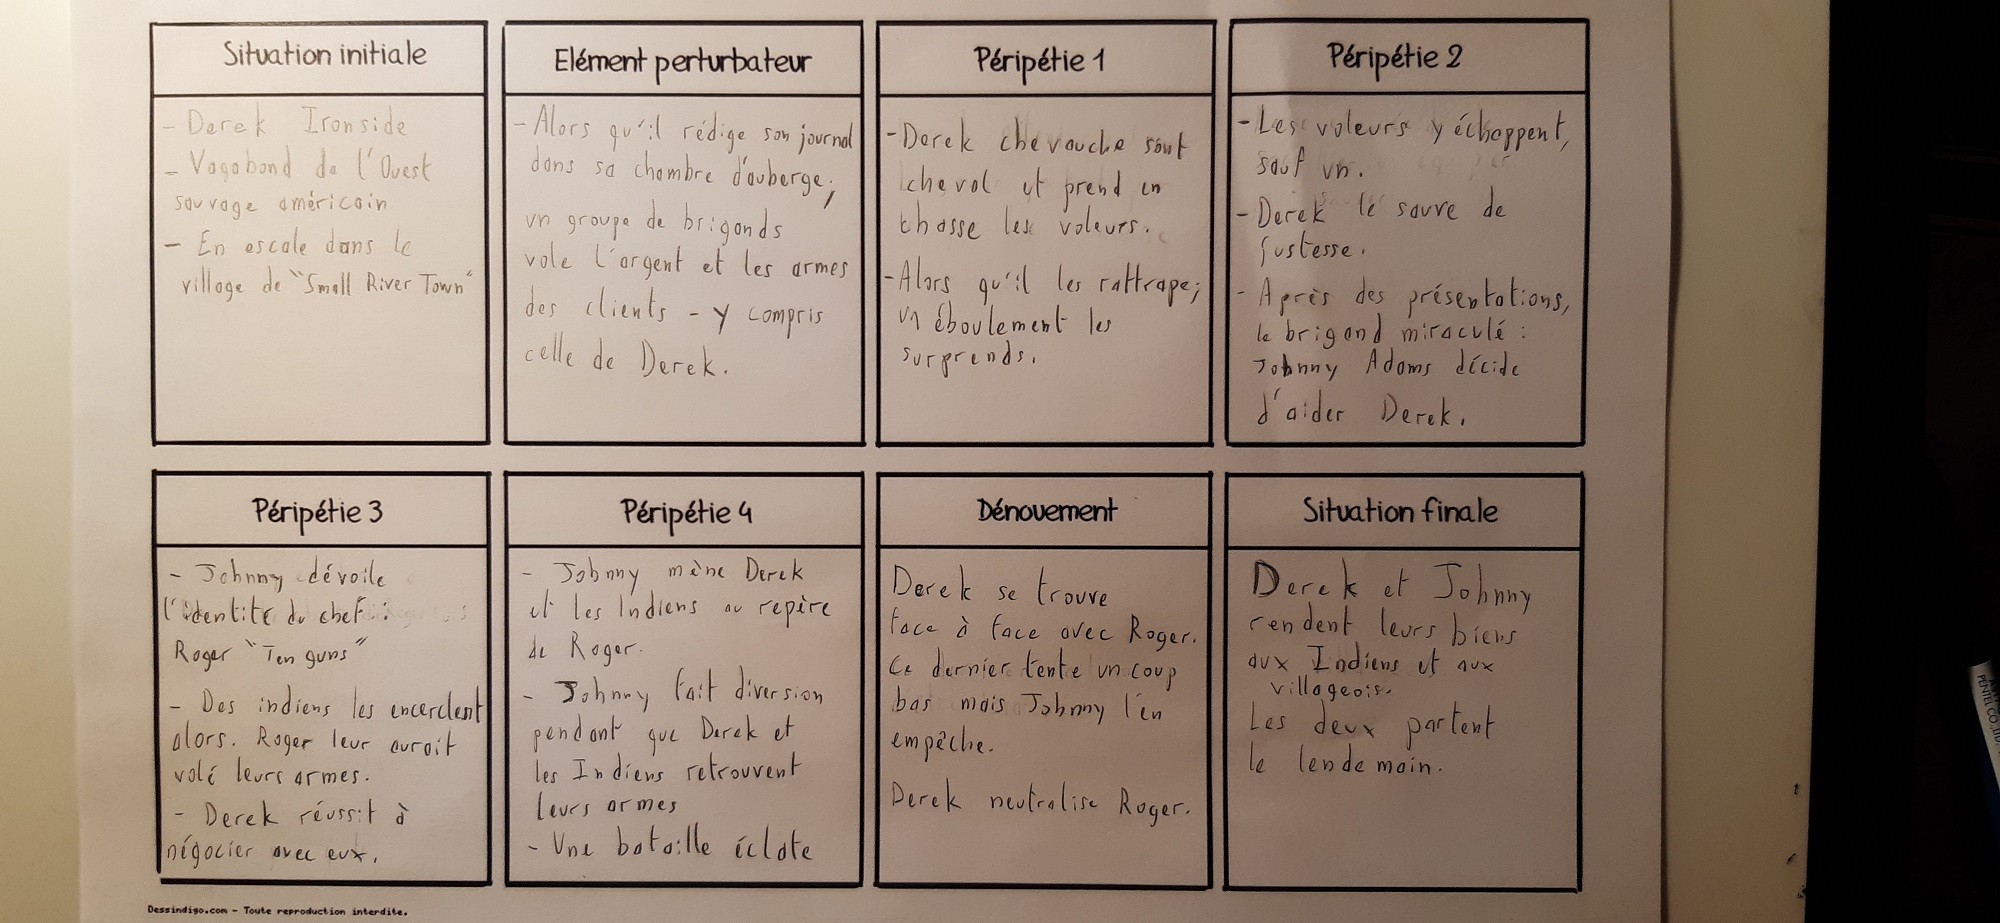 Situation initiale
- Derek Ironside
- Vagabond de l'Ouest
sauvage américain
- En escale dans le
village de "Small River Town"
Elément perturbateur
- Alors qu'il rédige son journal
dans sa chambre d'auberge,
un groupe de brigands
vole l'argent et les armes
des clients - y compris
celle de Derek.
Péripétie 1
- Derek chevauche sont
cheval et prend en
chasse les voleurs.
- Alors qu'il les rattrape;
un éboulement les
surprends.
Péripétie 2
- Les voleurs y échappent,
sauf un.
- Derek le sauve de
justesse.
- Après des présentations,
le brigand miraculé :
Johnny Adams décide
d'aider Derek.
Péripétie 3
- Johnny dévoile
l'identité du chef :
Roger "Ten guns"
- Des indiens les encerclent
alors. Roger leur auroit
volé leurs armes.
- Derek réussit à
négocier avec eux.
Péripétie 4
- Johnny mène Derek
et les Indiens au repère
de Roger.
- Johnny fait diversion
pendant que Derek et
les Indiens retrouvent
leurs armes
- Une bataille éclate
Dénouement
Derek se trouve
face à face avec Roger.
Ce dernier tente un coup
bas mais Johnny l'en
empêche.
Derek neutralise Roger.
Situation finale
Derek et Johnny
rendent leurs biens
aux Indiens et aux
villageois.
Les deux partent
le lendemain.
Dessindigo.com - Toute reproduction interdite.
PENTEL CO.,